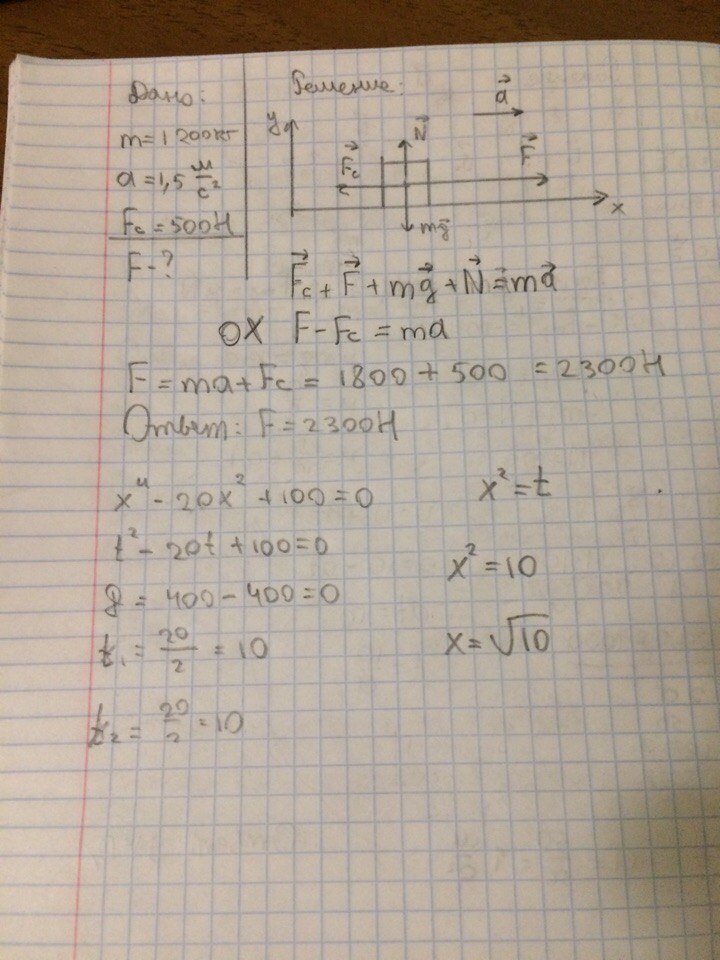 Дано:
m = 1200 кг
a = 1,5 м/с²
Fc = 500Н
F - ?
Решение:
y
a⃗
N⃗
F⃗c
F⃗
mg⃗
x
F⃗c + F⃗ + mg⃗ + N⃗ = ma⃗
OX F - Fc = ma
F = ma + Fc = 1800 + 500 = 2300Н
Ответ: F = 2300Н
x⁴ - 20x² + 100 = 0
x² = t
t² - 20t + 100 = 0
x² = 10
D = 400 - 400 = 0
t₁ = 20/2 = 10
x = √10
t₂ = 20/2 = 10